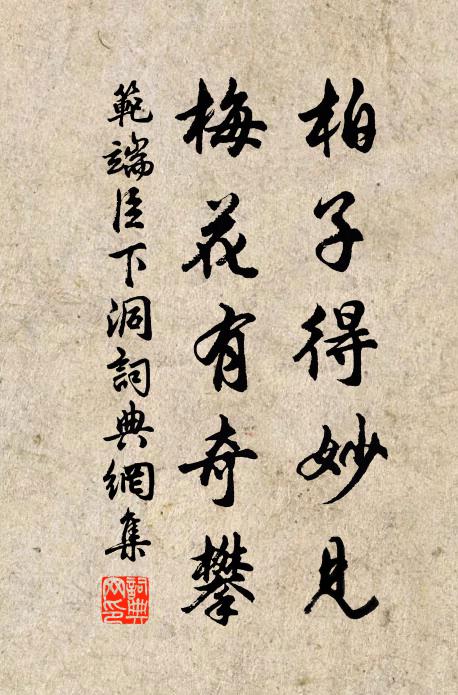 柏子得妙見
梅花有奇攀
範端臣下洞詞典網集
詞典網印